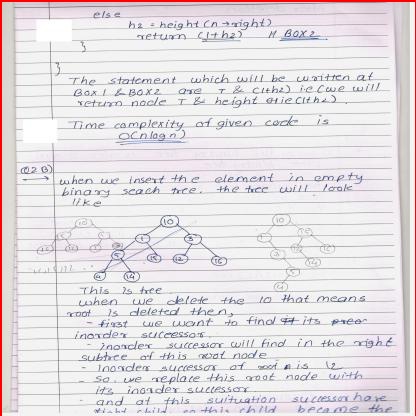 else
h2 = height(n→right)
return (1+h2) // BOX2
}
}
The statement which will be written at
BOX1 & BOX2 are T & (1+h2) i.e (we will
return node T & height (1+h2).
Time complexity of given code is
O(nlogn)
Q2B) when we insert the element in empty
binary seach tree. the tree will look
like
10
1 3
5 15 12 16
4 14
10
This is tree.
when we delete the 10 that means
root is deleted then,
- first we want to find its
inorder successor.
- inorder successor will find in the right
subtree of this root node
- inorder successor of root is 12
- so, we replace this root node with
its inorder successor
- and at this suituation successor have
right child, so this child became the